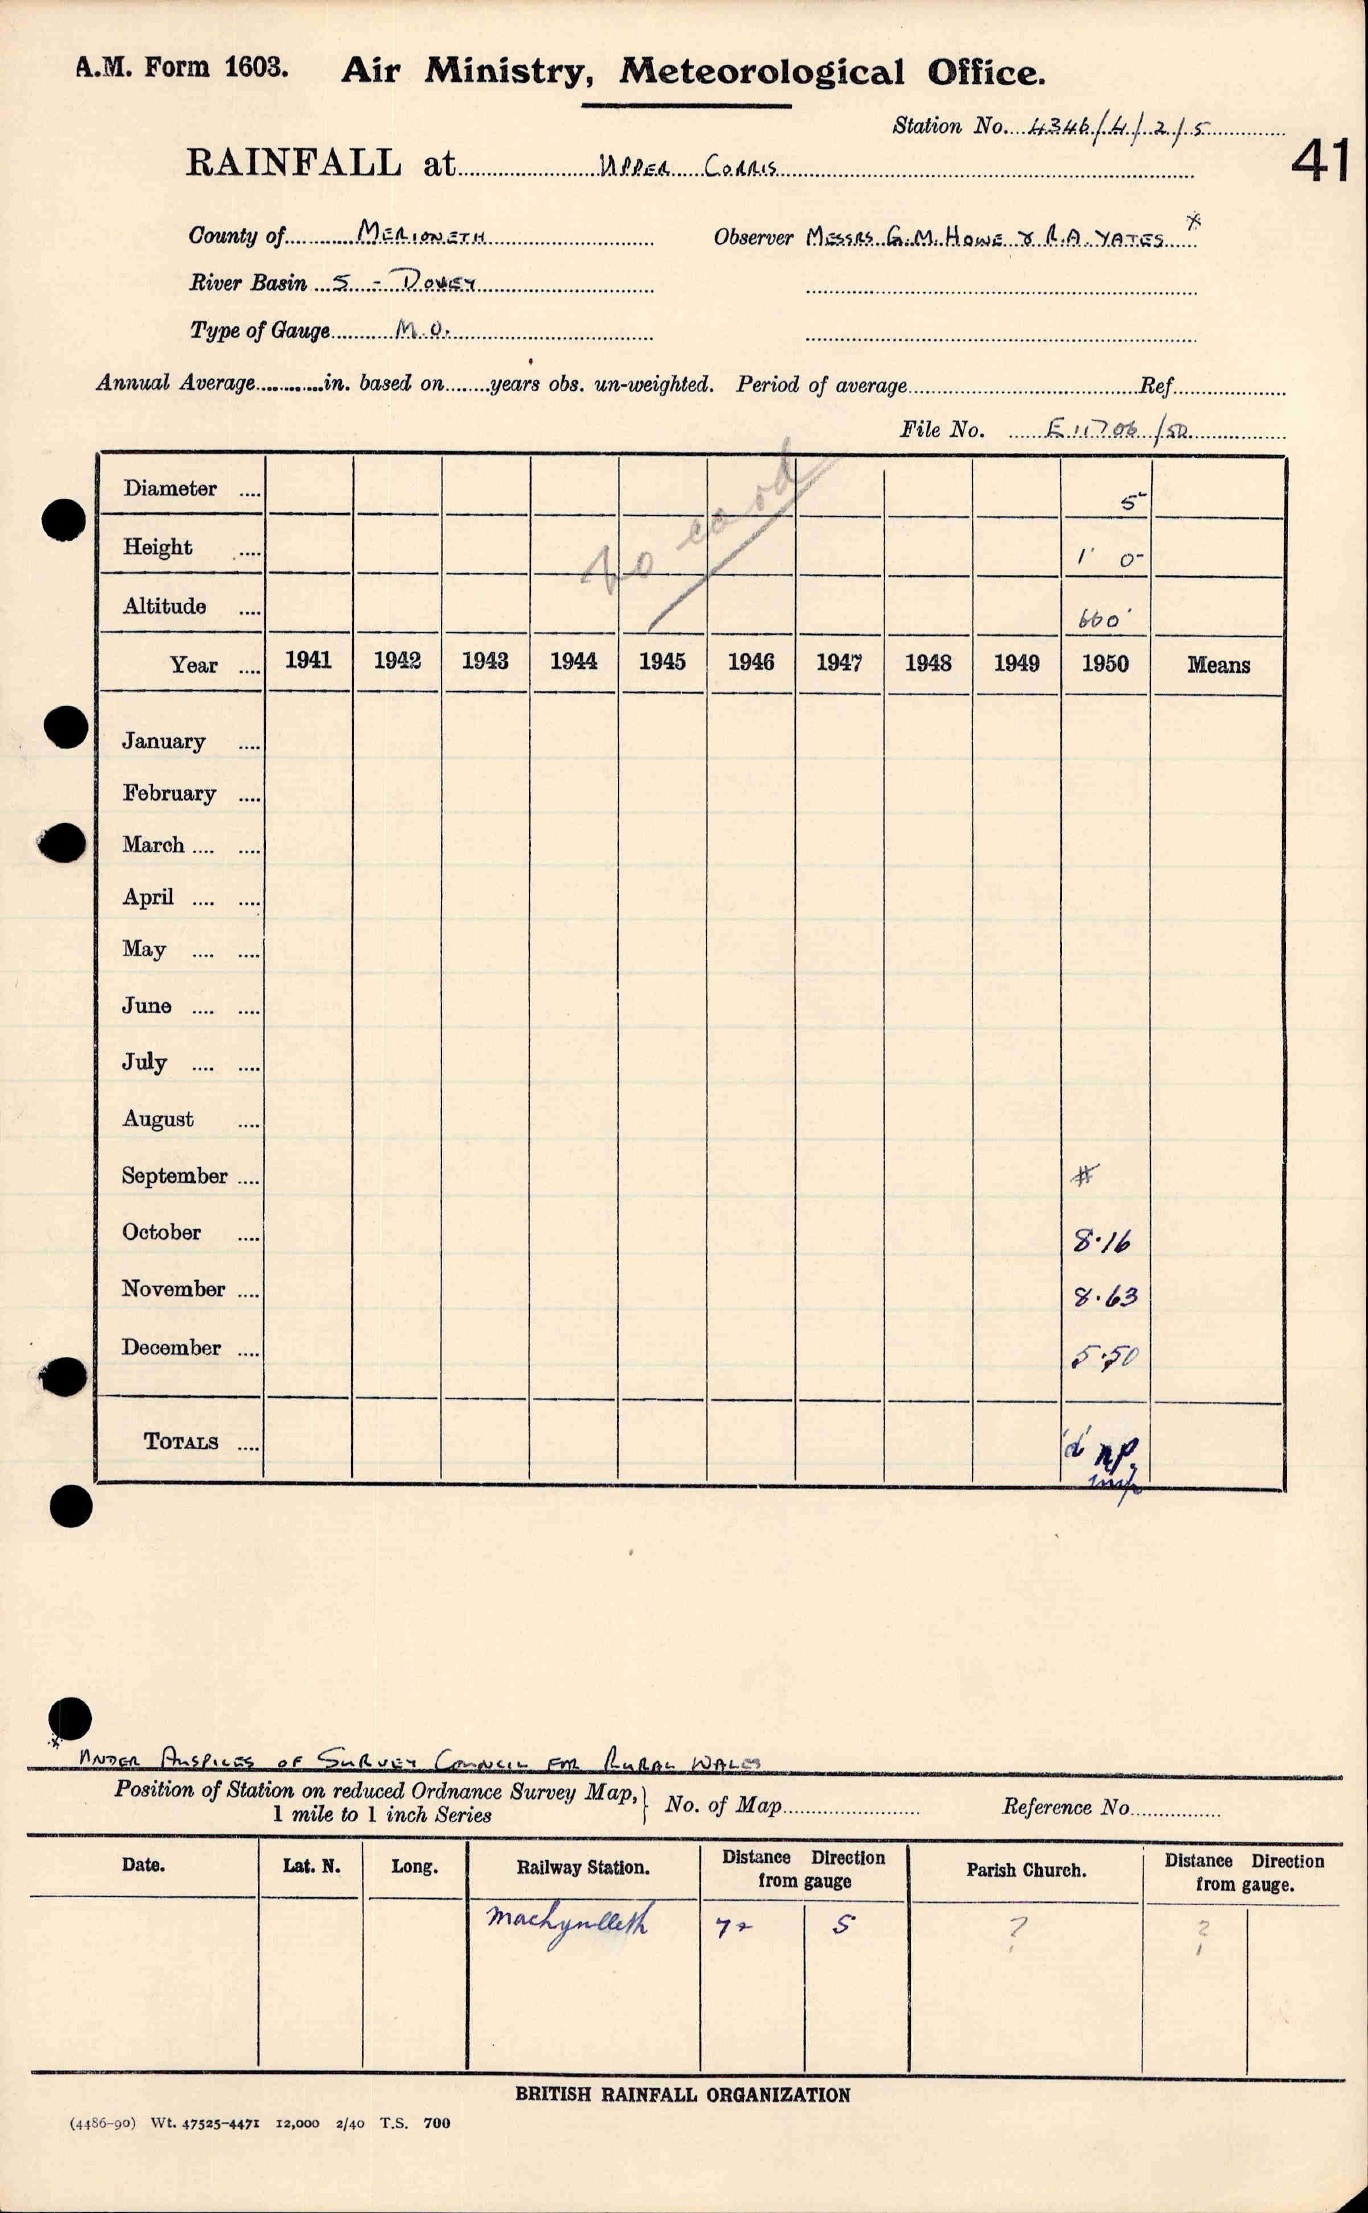 A.M. Form 1603. Air Ministry, Meteorological Office.
Station No. 4346/4/2/5
41
RAINFALL at UPPER CORRIS
County of MERIONETH Observer MESSRS G.M. HOWE & R.A. YATES *
River Basin 5 - DOVEY
Type of Gauge M.O.
Annual Average............in. based on........years obs. un-weighted. Period of average........Ref........
File No. E 11706/50
no card
Diameter .... 5"
Height .... 1' 0"
Altitude .... 660'
Year .... 1941 1942 1943 1944 1945 1946 1947 1948 1949 1950 Means
January ....
February ....
March .... ....
April .... ....
May .... ....
June .... ....
July .... ....
August ....
September .... #
October .... 8.16
November .... 8.63
December .... 5.50
TOTALS .... 'd' np.
* UNDER AUSPICES OF SURVEY COUNCIL FOR RURAL WALES
Position of Station on reduced Ordnance Survey Map, } No. of Map........ Reference No........
1 mile to 1 inch Series
Date. Lat. N. Long. Railway Station. Distance Direction from gauge Parish Church. Distance Direction from gauge.
Machynlleth S ? ?
BRITISH RAINFALL ORGANIZATION
(4486-90) Wt. 47525-4471 12,000 2/40 T.S. 700